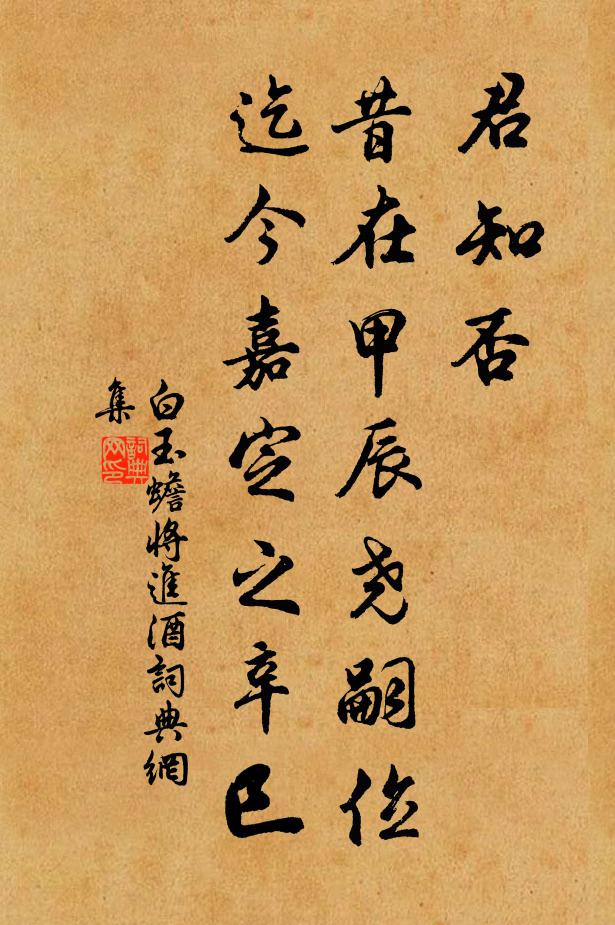 君知否
昔在甲辰尧嗣位
迄今嘉定之辛巳
白玉蟾將進酒詞典網
集
詞典
网印